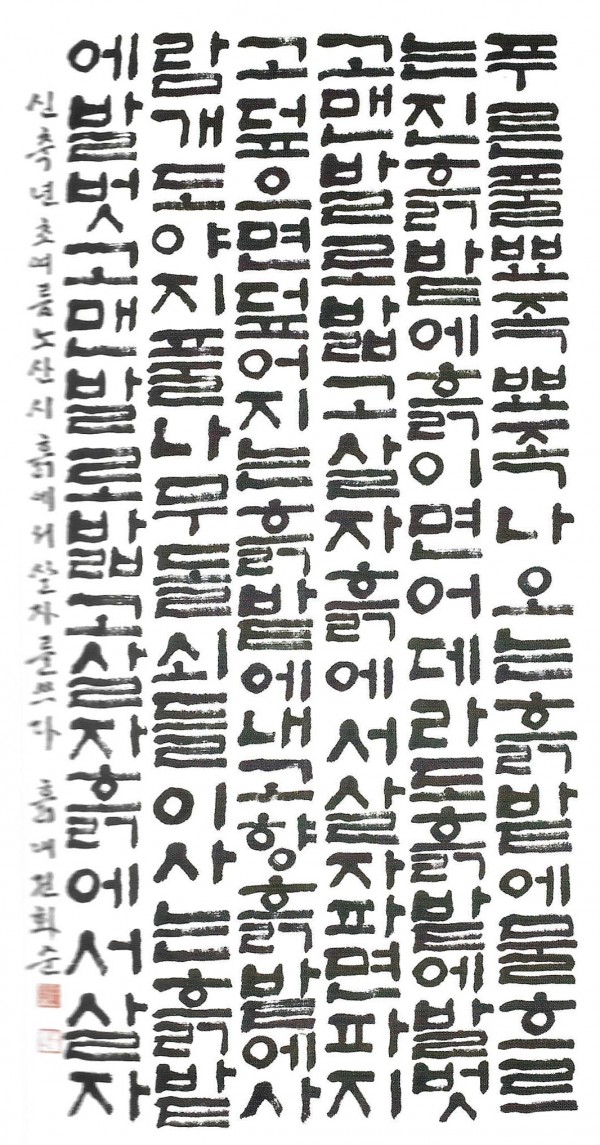 푸른풀뾰족뾰족나오는흙밭에물흐르
는진흙밭에흙이면어데라도흙밭에발벗
고맨발로밟고살자흙에서살자파면파지
고덮으면덮어지는흙밭에내고향흙밭에사
람개도야지풀나무돌쇠들이사는흙밭
에발벗고맨발로밟고살자흙에서살자
신축년초여름노산시흙에서살자를쓰다